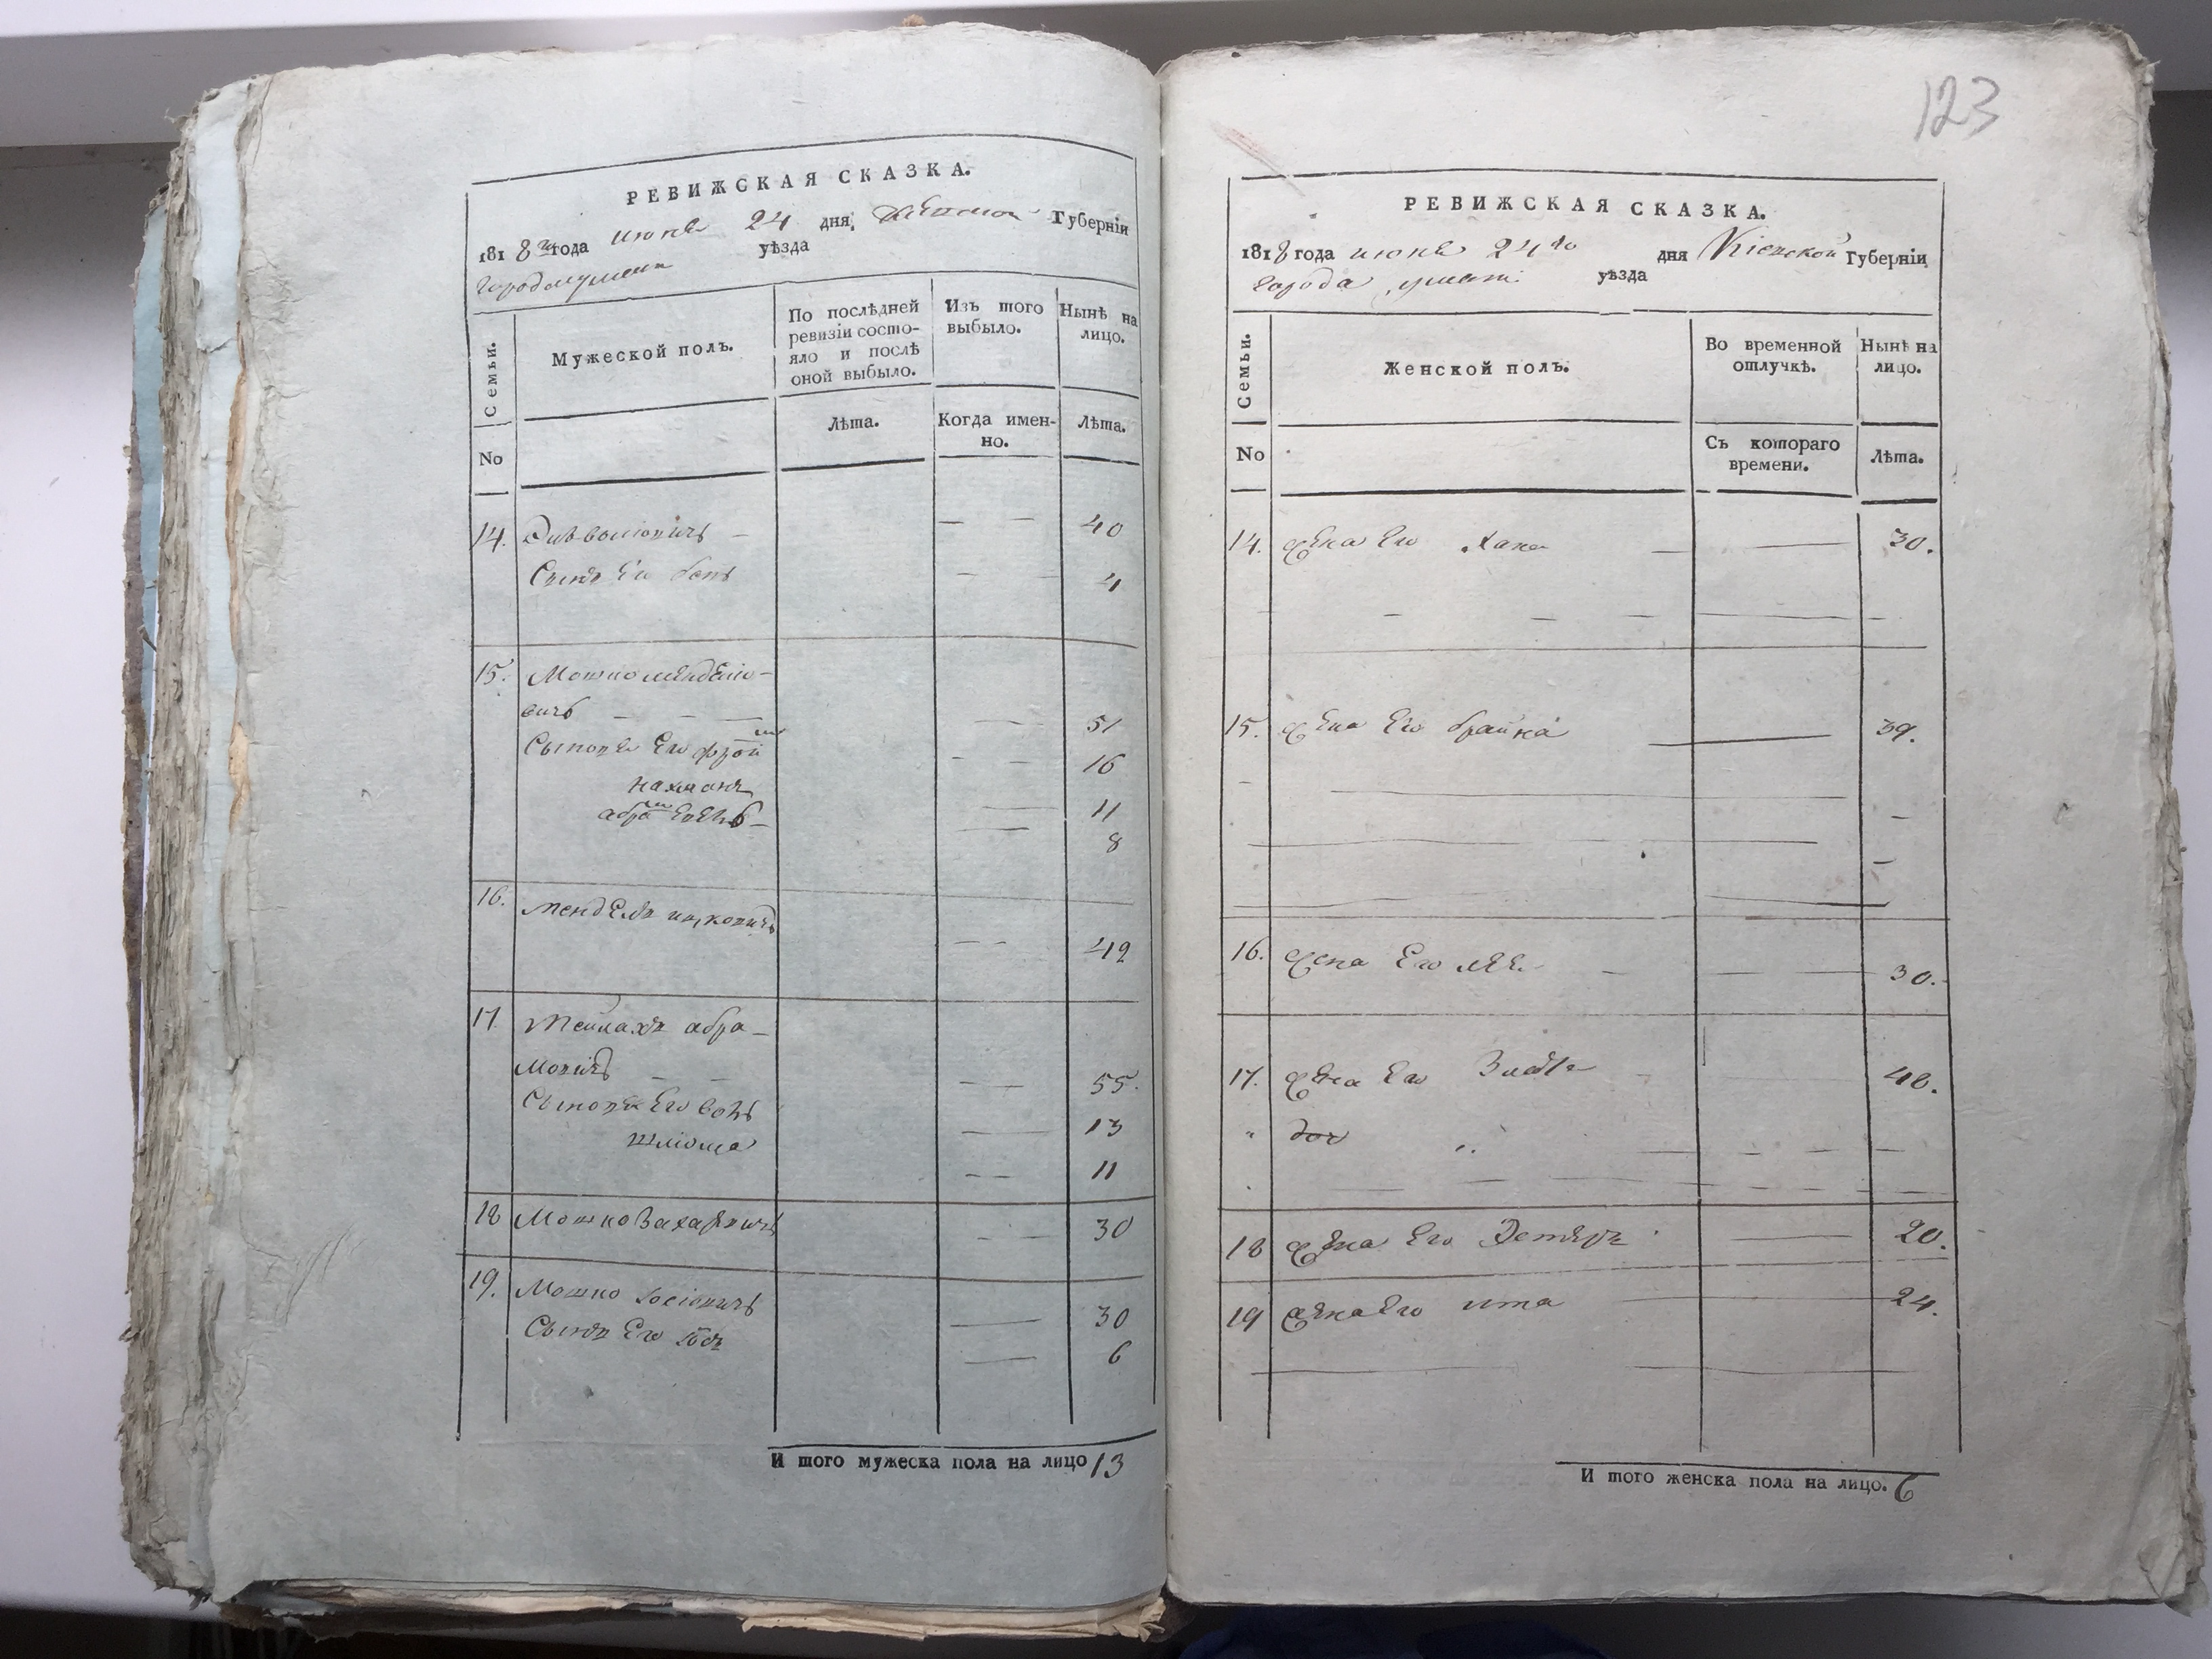 РЕВИЖСКАЯ СКАЗКА.
1818го года июня 24 дня, Киевской Губерніи
города умани уѣзда
Семьи. Мужеской полъ. По послѣдней ревизіи состояло и послѣ оной выбыло. Изъ того выбыло. Нынѣ на лицо.
No Лѣта. Когда именно. Лѣта.
14. 40
Сынъ Его 4
15. Мошко менделіо-
вичъ 51
Сыновья Его фроим 16
нахманъ 11
абрам 8
16. мендель ицковичъ 42
17. мейлахъ абра-
мовичъ 55.
Сыновья Его 13
шліома 11
18 Мошко Захаровичъ 30
19. Мошко Іосіовичъ 30
Сынъ Его 6
И того мужеска пола на лицо 13
123
РЕВИЖСКАЯ СКАЗКА.
1818 года июня 24го дня Кіевской Губерніи
города умани уѣзда
Семьи. Женской полъ. Во временной отлучкѣ. Нынѣ на лицо.
No Съ котораго времени. Лѣта.
14. жена Его хана 30.
15. жена Его брайна 39.
16. жена Его лея 30.
17. жена Его Злата 48.
доч
18 жена Его Эстеръ 20.
19 жена Его ита 24.
И того женска пола на лицо. 6